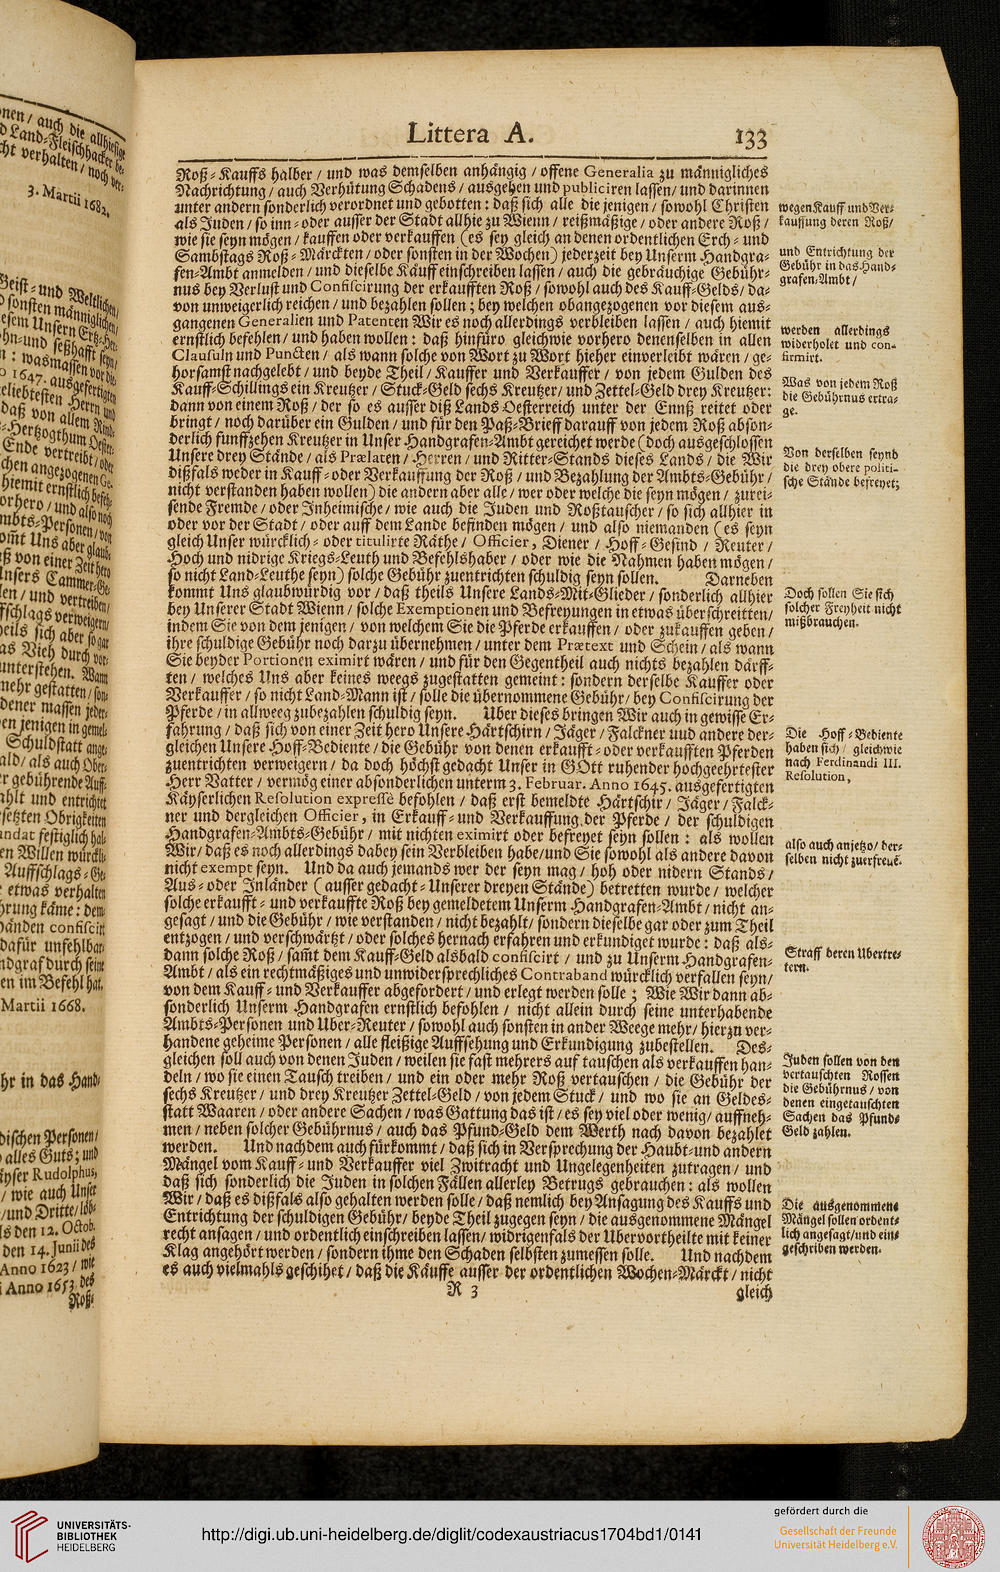 Littera A. 133
Roß-Kauffs halber / und was demselben anhängig / offene Generalia zu männigliches
Nachrichtung / auch Verhütung Schadens / ausgehen und publiciren lassen / und darinnen
unter andern sonderlich verordnet und gebotten : daß sich alle die jenigen / sowohl Christen
als Juden / so inn- oder ausser der Stadt allhie zu Wienn / reißmäßige / oder andere Roß /
wie sie seyn mögen / kauffen oder verkauffen (es sey gleich an denen ordentlichen Erch- und
Sambstags Roß-Märckten / oder sonsten in der Wochen) jederzeit bey Unserm Handgra-
fen-Ambt anmelden / und dieselbe Käuff einschreiben lassen / auch die gebräuchige Gebühr-
nus bey Verlust und Confiscirung der erkaufften Roß / sowohl auch des Kauff-Gelds / da-
von unweigerlich reichen / und bezahlen sollen ; bey welchen obangezogenen vor diesem aus-
gangenen Generalien und Patenten Wir es noch allerdings verbleiben lassen / auch hiemit
ernstlich befehlen / und haben wollen : daß hinfüro gleichwie vorhero denenselben in allen
Clausuln und Puncten / als wann solche von Wort zu Wort hieher einverleibt wären / ge-
horsamst nachgelebt / und beyde Theil / Kauffer und Verkauffer / von jedem Gulden des
Kauff-Schillings ein Kreutzer / Stuck-Geld sechs Kreutzer / und Zettel-Geld drey Kreutzer:
dann von einem Roß / der so es ausser diß Lands Oesterreich unter der Ennß reitet oder
bringt / noch darüber ein Gulden / und für den Paß-Brieff darauff von jedem Roß abson-
derlich funffzehen Kreutzer in Unser Handgrafen-Ambt gereichet werde (doch ausgeschlossen
Unsere drey Stände / als Prælaten / Herren / und Ritter-Stands dieses Lands / die Wir
dißfals weder in Kauff- oder Verkauffung der Roß / und Bezahlung der Ambts-Gebühr /
nicht verstanden haben wollen) die andern aber alle / wer oder welche die seyn mögen / zurei-
sende Fremde / oder Inheimische / wie auch die Juden und Roßtauscher / so sich allhier in
oder vor der Stadt / oder auff dem Lande befinden mögen / und also niemanden (es seyn
gleich Unser würcklich- oder titulirte Räthe / Officier, Diener / Hoff-Gesind / Reuter /
Hoch und nidrige Kriegs-Leuth und Befehlshaber / oder wie die Nahmen haben mögen /
so nicht Land-Leuthe seyn) solche Gebühr zuentrichten schuldig seyn sollen. Darneben
kommt Uns glaubwürdig vor / daß theils Unsere Lands-Mit-Glieder / sonderlich allhier
bey Unserer Stadt Wienn / solche Exemptionen und Befreyungen in etwas überschreitten /
indem Sie von dem jenigen / von welchem Sie die Pferde erkauffen / oder zukauffen geben /
ihre schuldige Gebühr noch darzu übernehmen / unter dem Prætext und Schein / als wann
Sie beyder Portionen eximirt wären / und für den Gegentheil auch nichts bezahlen därff-
ten / welches Uns aber keines weegs zugestatten gemeint : sondern derselbe Kauffer oder
Verkauffer / so nicht Land-Mann ist / solle die übernommene Gebühr / bey Confiscirung der
Pferde / in allweeg zubezahlen schuldig seyn. Uber dieses bringen Wir auch in gewisse Er-
fahrung / daß sich von einer Zeit hero Unsere Härtschirn / Jäger / Falckner uud andere der-
gleichen Unsere Hoff-Bediente / die Gebühr von denen erkaufft- oder verkaufften Pferden
zuentrichten verweigern / da doch höchst gedacht Unser in GOtt ruhender hochgeehrtester
Herr Vatter / vermög einer absonderlichen unterm 3. Februar. Anno 1645. ausgefertigten
Käyserlichen Resolution expressè befohlen / daß erst bemeldte Härtschir / Jäger / Falck-
ner und dergleichen Officier, in Erkauff- und Verkauffung der Pferde / der schuldigen
Handgrafen-Ambts-Gebühr / mit nichten eximirt oder befreyet seyn sollen : als wollen
Wir / daß es noch allerdings dabey sein Verbleiben habe / und Sie sowohl als andere davon
nicht exempt seyn. Und da auch jemands wer der seyn mag / hoh oder nidern Stands /
Aus- oder Inländer (ausser gedacht-Unserer dreyen Stände) betretten wurde / welcher
solche erkaufft- und verkauffte Roß bey gemeldetem Unserm Handgrafen-Ambt / nicht an-
gesagt / und die Gebühr / wie verstanden / nicht bezahlt / sondern dieselbe gar oder zum Theil
entzogen / und verschwärtzt / oder solches hernach erfahren und erkundiget wurde : daß als-
dann solche Roß / samt dem Kauff-Geld alsbald confiscirt / und zu Unserm Handgrafen-
Ambt / als ein rechtmäßiges und unwidersprechliches Contraband würcklich verfallen seyn /
von dem Kauff- und Verkauffer abgefordert / und erlegt werden solle ; Wie Wir dann ab-
sonderlich Unserm Handgrafen ernstlich befohlen / nicht allein durch seine unterhabende
Ambts-Personen und Uber-Reuter / sowohl auch sonsten in ander Weege mehr / hierzu ver-
handene geheime Personen / alle fleißige Auffsehung und Erkundigung zubestellen. Des-
gleichen soll auch von denen Juden / weilen sie fast mehrers auf tauschen als verkauffen han-
deln / wo sie einen Tausch treiben / und ein oder mehr Roß vertauschen / die Gebühr der
sechs Kreutzer / und drey Kreutzer Zettel-Geld / von jedem Stuck / und wo sie an Geldes-
statt Waaren / oder andere Sachen / was Gattung das ist / es sey viel oder wenig / auffneh-
men / neben solcher Gebührnus / auch das Pfund-Geld dem Werth nach davon bezahlet
werden. Und nachdem auch fürkommt / daß sich in Versprechung der Haubt- und andern
Mängel vom Kauff- und Verkauffer viel Zwitracht und Ungelegenheiten zutragen / und
daß sich sonderlich die Juden in solchen Fällen allerley Betrugs gebrauchen : als wollen
Wir / daß es dißfals also gehalten werden solle / daß nemlich bey Ansagung des Kauffs und
Entrichtung der schuldigen Gebühr / beyde Theil zugegen seyn / die ausgenommene Mängel
recht ansagen / und ordentlich einschreiben lassen / widrigenfals der Ubervortheilte mit keiner
Klag angehört werden / sondern ihme den Schaden selbsten zumessen solle. Und nachdem
es auch vielmahls geschihet / daß die Käuffe ausser der ordentlichen Wochen-Märckt / nicht
R 3 gleich
wegen Kauff und Ver-
kauffung deren Roß /
und Entrichtung der
Gebühr in das Hand-
grafen-Ambt /
werden allerdings
widerholet und con-
firmirt.
Was von jedem Roß
die Gebührnus ertra-
ge.
Von derselben seynd
die drey obere politi-
sche Stände befreyet;
Doch sollen Sie sich
solcher Freyheit nicht
mißbrauchen.
Die Hoff-Bediente
haben sich / gleichwie
nach Ferdinandi III.
Resolution,
also auch anjetzo / der-
selben nicht zuerfreuë.
Straff deren Ubertre-
tern.
Juden sollen von den
vertauschten Rossen
die Gebührnus / von
denen eingetauschten
Sachen das Pfund-
Geld zahlen.
Die ausgenommene
Mängel sollen ordent-
lich angesagt / und ein-
geschrieben werden.
3. Martii 1682.
Martii 1668.
Roß-
UNIVERSITÄTS-
BIBLIOTHEK
HEIDELBERG
http://digi.ub.uni-heidelberg.de/diglit/codexaustriacus1704bd1/0141
gefördert durch die
Gesellschaft der Freunde
Universität Heidelberg e.V.